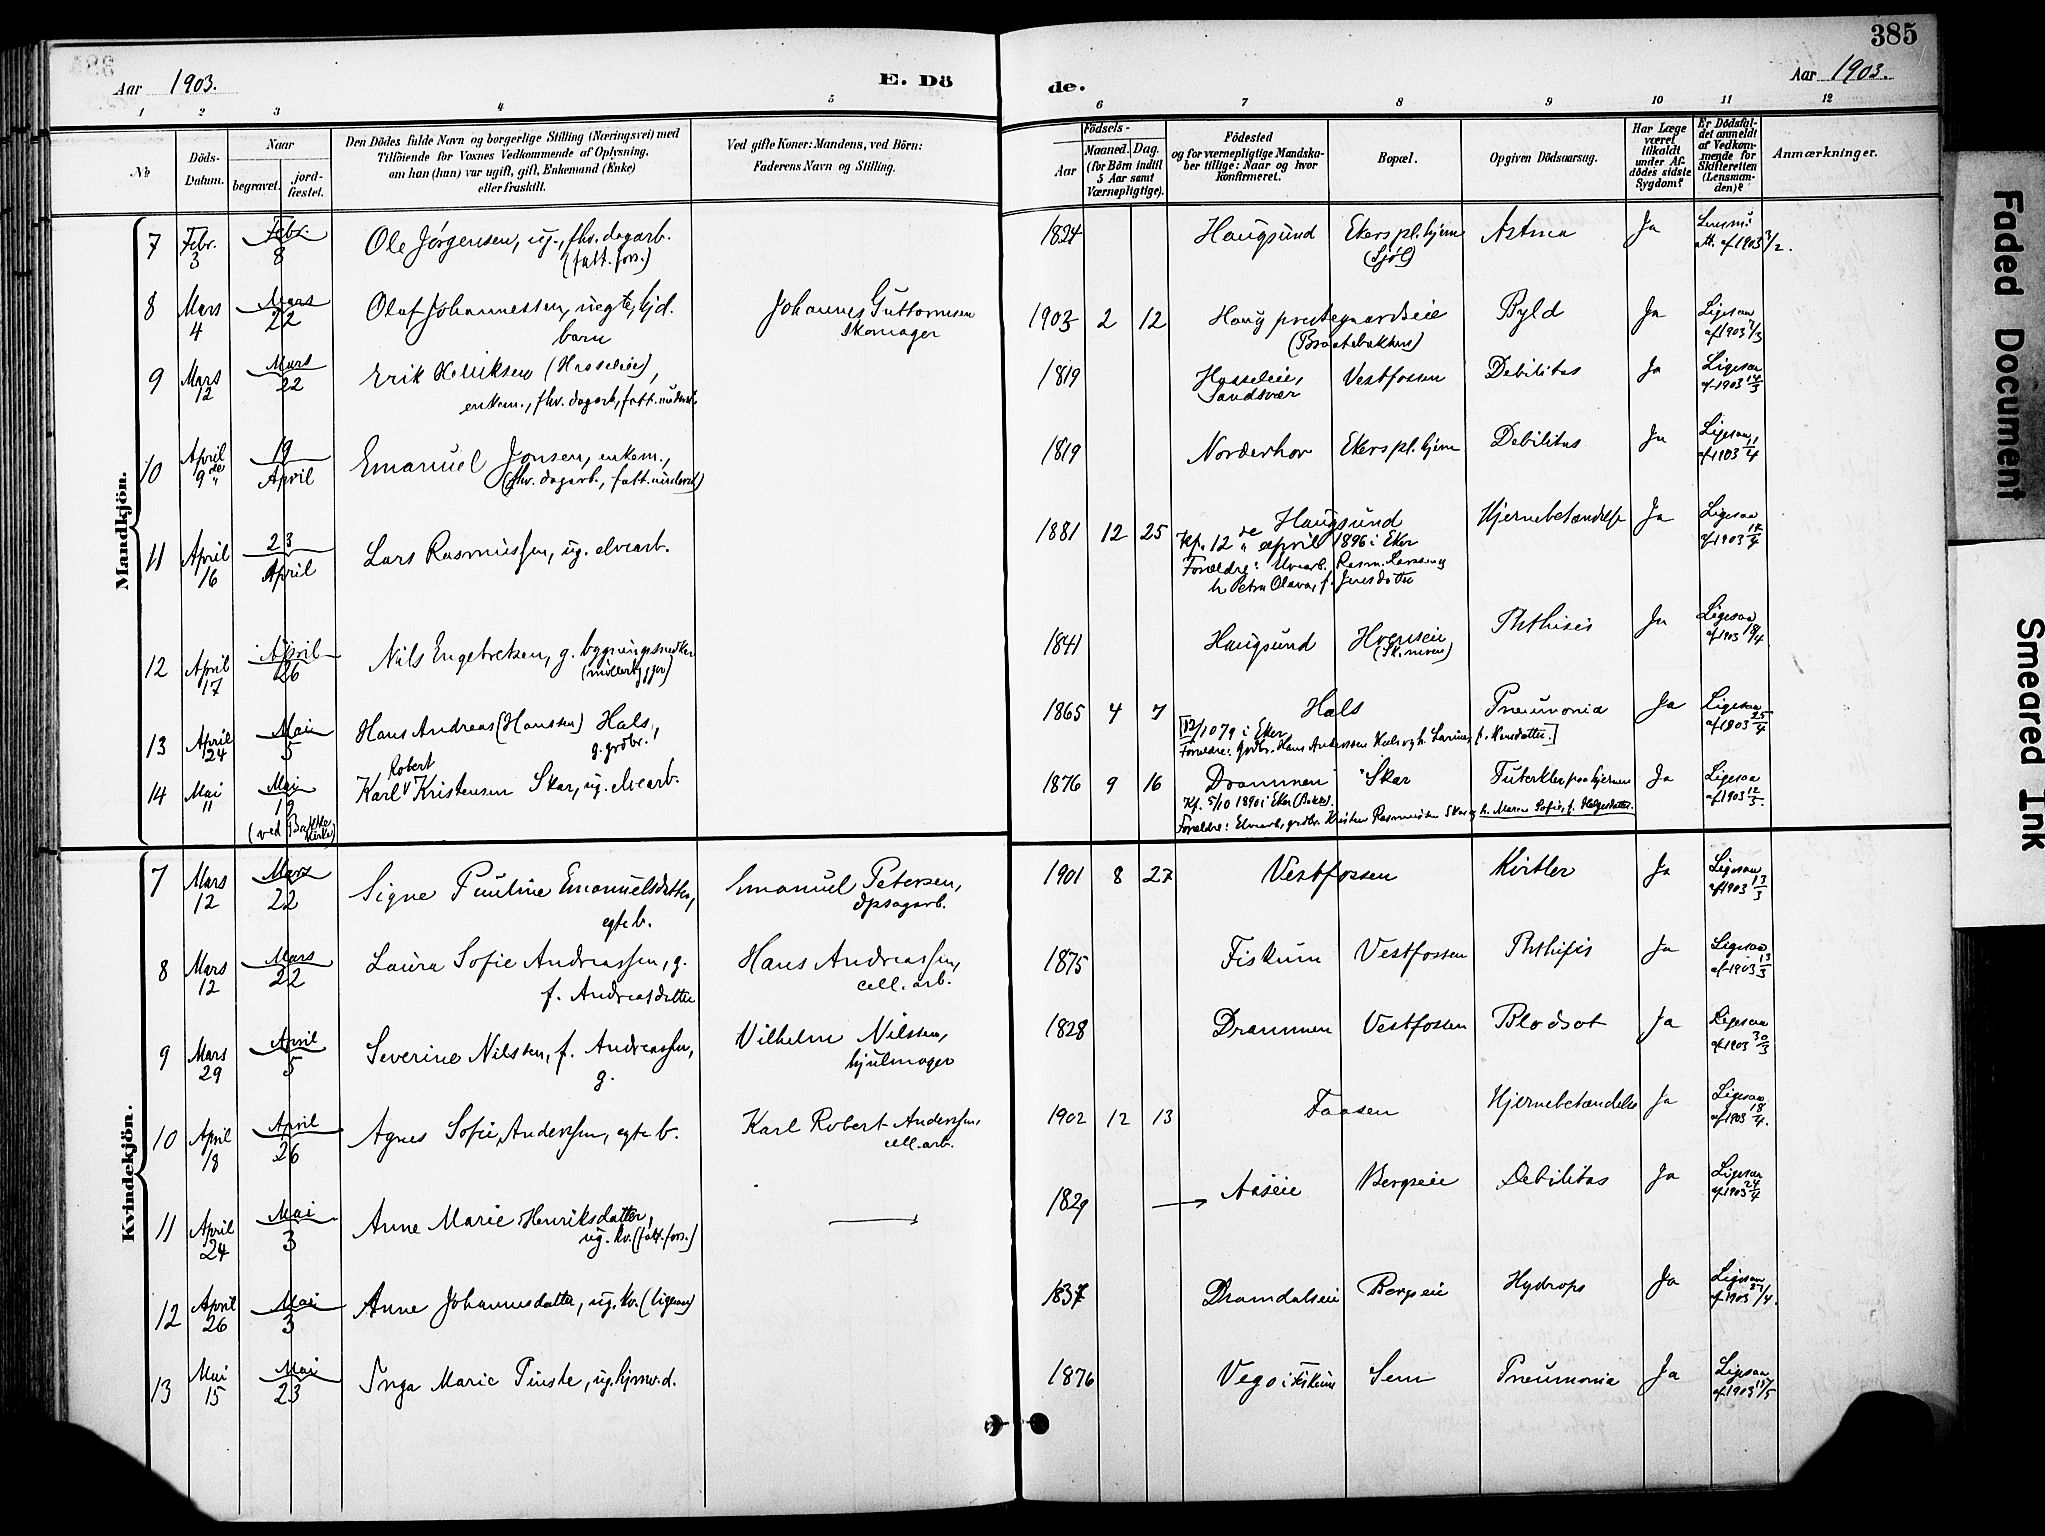 385
Aar 1903.
E. Dö
de.
Aar 1903.
1 2 3 4 5 6 7 8 9 10 11 12
No
Döds-
Datum.
Naar
begravet.
jord-
fæstet.
Den Dödes fulde Navn og borgerlige Stilling (Næringsvei) med
Tilföiende for Voxnes Vedkommende af Oplysning,
om han (hun) var ugift, gift, Enkemand (Enke)
eller fraskilt.
Ved gifte Koner: Mandens, ved Börn:
Faderens Navn og Stilling.
Födsels-
Aar
Maaned. Dag.
(for Börn indtil
5 Aar samt
Værnepligtige).
Födested
og for værnepligtige Mandska-
ber tillige: Naar og hvor
konfirmeret.
Bopæl.
Opgiven Dödsaarsag.
Har Læge
været
tilkaldt
under Af-
dödes sidste
Sygdom?
Er Dödsfal-
det anmeldt
af Vedkom-
mende for
Skifteretten
(Lensman-
den)?
Anmærkninger.
Mandkjön.
7 Febr. 3 Febr. 8 Ole Jörgensen, ug., fhv. dagarb. 1824 Haugsund Ekers pl. hjem Astma Ja
(fatt. fors.)
8 Mars 4 Mars 22 Olaf Johannessen, uegte hjd. Johannes Guttormsen 1903 2 12 Haug prestegaardseie Byld Ja Ligesaa
barn skomager (Braatebakken) af 1903 7/3
9 Mars 12 Mars 22 Erik Henriksen (Hasseleie), 1819 Hasseleie, Vestfossen Debilitas Ja Ligesaa
enkem., fhv. dagarb., fatt. underst. Sandsvær af 1903 14/3
10 April 9de 19 April Emanuel Jonsen, enkem., 1819 Norderhov Ekers pl. hjem Debilitas Ja Ligesaa
(fhv. dagarb., fatt. underst.) af 1903 11/4
11 April 16 23 April Lars Rasmussen, ug. elvearb. 1881 12 25 Haugsund Hjernebetændelse Ja Ligesaa
Kf. 12de april 1896 i Eker
Forældre: Elvearb. Rasm. Larsen og
h. Petra Olava, f. Jensdatter
12 April 17 April 26 Nils Engebretsen, g. bygningssnedker 1841 Haugsund Hoenseie Phthisis Ja Ligesaa
(møllebygger) af 1903 18/4
13 April 24 Mai 5 Hans Andreas (Hanssen) Hals, 1865 4 7 Hals Pneumonia Ja Ligesaa
g. grdbr. af 1903 25/4
[12/10 79 i Eker
Forældre: Grdbr. Hans Anderssen Hals og h. Larine, f. Hansdatter.]
14 Mai 11 Mai 19 Karl Robert Kristensen Skar, ug. elvearb. 1876 9 16 Drammen Skar Tuberkler paa hjernen Ja Ligesaa
(ved Bakke kirke) Kf. 5/10 1890 i Eker (Bakke). af 1903 12/5
Forældre: Elvearb., grdbr. Kristen Rasmussen Skar og h. Maren Sofie, f. Helgesdatter.
Kvindekjön.
7 Mars 12 Mars 22 Signe Pauline Emanuelsdatter, Emanuel Petersen, 1901 8 27 Vestfossen Kirtler Ja Ligesaa
egte b. opsagarb. af 1903 13/3
8 Mars 12 Mars 22 Laura Sofie Andreassen, g. Hans Andreassen, 1875 Fiskum Vestfossen Phthisis Ja Ligesaa
f. Andreasdatter cell. arb. af 1903 13/3
9 Mars 29 April 5 Severine Nilsen, f. Andreassen, Vilhelm Nilssen, 1828 Drammen Vestfossen Blodsot Ja Ligesaa
g. hjulmager af 1903 30/3
10 April 18 April 26 Agnes Sofie Anderssen, egte b. Karl Robert Anderssen, 1902 12 13 Faasen Hjernebetændelse Ja Ligesaa
cell. arb. af 1903 18/4.
11 April 24 Mai 3 Anne Marie Henriksdatter, 1829 Aaseie Bergseie Debilitas Ja Ligesaa
ug. kv. (fatt. fors.) af 1903 24/4
12 April 26 Mai 3 Anne Johannesdatter, ug. kv. (ligesaa) 1837 Dramdalseie Bergseie Hydrops Ja Ligesaa
af 1903 27/4.
13 Mai 15 Mai 23 Inga Marie Tinste, ug. hjmv. d. 1876 Vego i Fiskum Sem Pneumonia Ja Ligesaa
af 1903 15/5
Faded Document
Smeared Ink